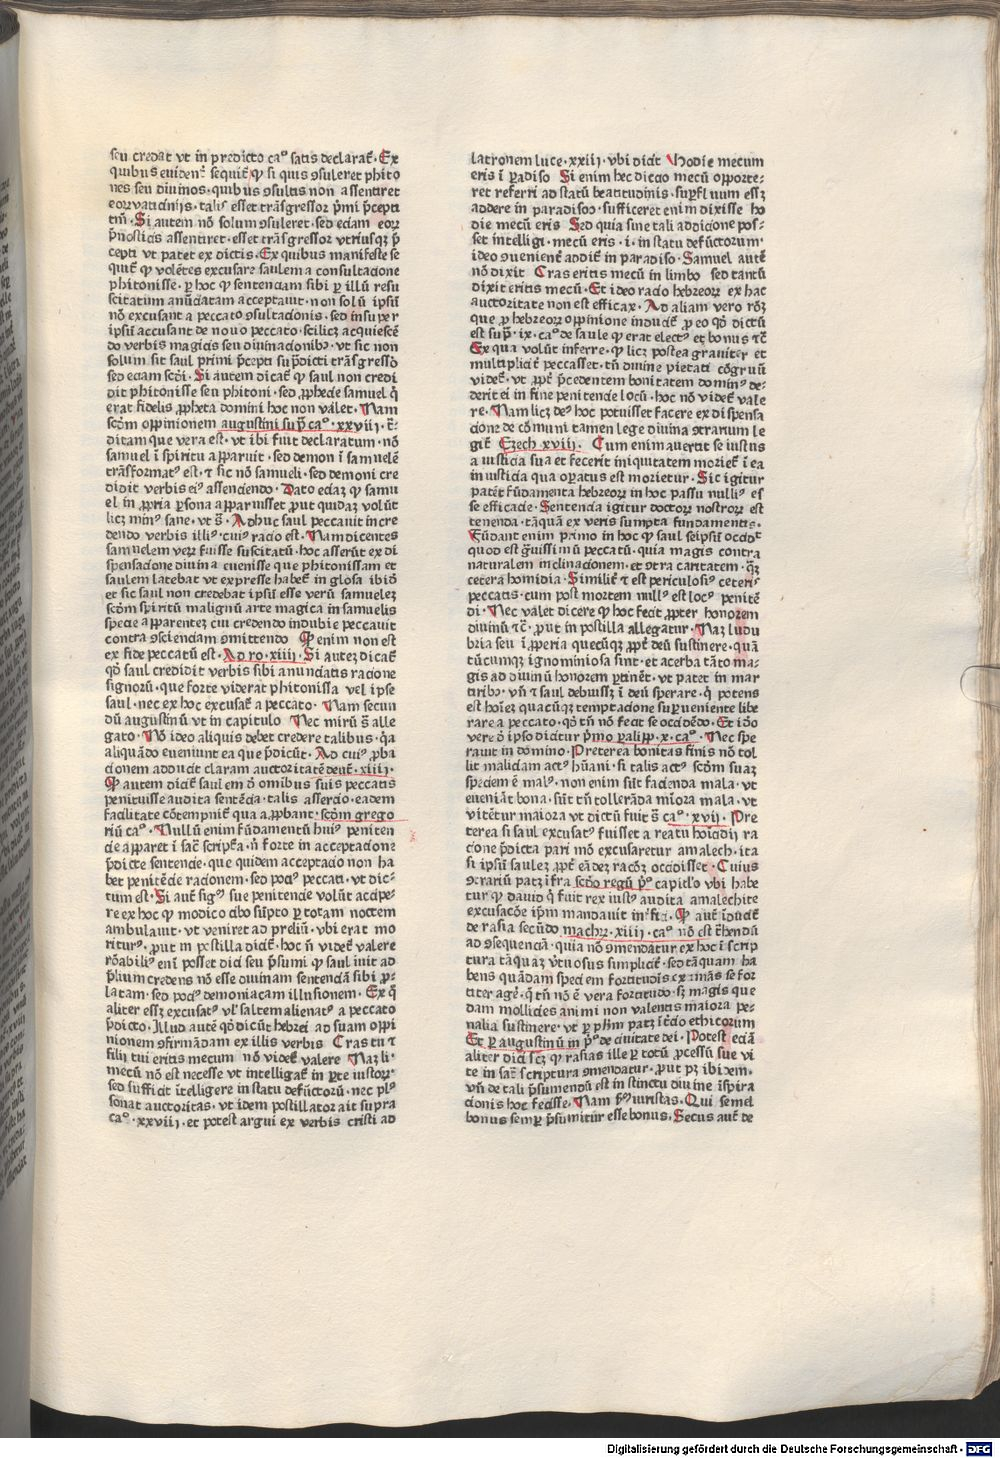 seu credat vt in predicto caº satis declarat̃. Ex
quibus euident̾ sequit̃ ꝙ si quis ꝯsuleret phito
nes seu diuinos. quibus ꝯsultis non assentiret
eoꝝ vaticinijs. talis esset trãsgressor p̃mi p̃cepti
tm̃. Si autem nõ solum ꝯsuleret. sed eciam eoꝝ
p̃nosticis assentiret. esset trãsgressor vtriusqꝫ p̃
cepti vt patet ex dictis. Ex quibus manifeste se
quit̃ ꝙ volẽtes excusare saulem a consultacione
phitonisse. ꝑ hoc ꝙ sentenciam sibi ꝑ illũ resu
scitatum anũciatam acceptauit. non solũ ipsũ
nõ excusant a peccato ꝯsultacionis. sed insuper
ipsũ accusant de nouo peccato. scilicꝫ acquiescẽ
do verbis magicis seu diuinacionibꝰ. vt sic non
solum sit saul primi p̃cepti sup̃dicti trãsgressõ
sed eciam scd̃i. Si autem dicat̃ ꝙ saul non credi
dit phitonisse seu phitoni. sed ꝓphecie samuel q̃
erat fidelis ꝓpheta domini hoc non valet. Nam
scd̃m oppinionem augustini sup̃ caº. xxvij. t̃
ditam que vera est. vt ibi fuit declaratum. nõ
samuel ĩ spiritu apparuit. sed demon ĩ samuelẽ
trãsformatꝰ est. ⁊ sic nõ samueli. sed demoni cre
didit verbis eiꝰ assenciendo. Dato eciaꝫ ꝙ samu
el in ꝓpria ꝑsona apparuisset ꝓut quidaꝫ volũt
licꝫ minꝰ sane. vt s̃. Adhuc saul peccauit incre
dendo verbis illiꝰ. cuiꝰ racio est. Nam dicentes
samuelem veꝝ fuisse suscitatũ. hoc asserũt ex di
spensacione diuina euenisse que phitonissam et
saulem latebat vt expresse habet̃ in glosa ibid̃
et sic saul non credebat ipsũ esse verũ samuelez
scd̃m spiritũ malignũ arte magica in samuelis
specie apparentez cui credendo indubie peccauit
contra ꝯscienciam ꝯmittendo Qđ enim non est
ex fide peccatũ est. Ad ro. xiiij. Si autez dicat̃
qđ saul credidit verbis sibi anunciatis racione
signorũ. que forte viderat phitonissa vel ipse
saul. nec ex hoc excusat̃ a peccato. Nam secun
dũ augustinũ vt in capitulo Nec mirũ s̃ alle
gato. Nõ ideo aliquis debet credere talibus. q̃a
aliquãdo eueniunt ea que p̃dicũt. Ad cuiꝰ ꝓba
cionem adducit claram auctoritatẽ deut̃. xiij.
Qđ autem dicit̃ saulem d̃ omibus suis peccatis
penituisse audita sentẽcia. talis assercio. eadem
facilitate cõtempnit̃ qua aꝓbant. scd̃m grego
riũ caº. Nullũ enim fũdamentũ huiꝰ peniten
cie apparet ĩ sac̃ script̃a. ñ forte in acceptacione
p̃dicte sentencie. que quidem acceptacio non ha
bet penitẽcie racionem. sed pociꝰ peccati. vt dic-
tum est. Si aut̃ sigꝰ sue penitencie volũt accipe-
re ex hoc ꝙ modico cibo sũpto ꝑ totam noctem
ambulauit. vt veniret ad preliũ. vbi erat mo
riturꝰ. ꝓut in postilla dicit̃. hoc ñ videt̃ valere
rõabiliꝰ enĩ posset dici seu p̃sumi ꝙ saul iuit ad
p̃lium credens nõ esse diuinam sentenciã sibi ꝓ-
latam. sed pociꝰ demoniacam illusionem. Ex q̃
aliter essꝫ excusatꝰ vl̾ saltem alienatꝰ a peccato
p̃dicto. Illud autẽ qđ dicũt hebrei ad suam oppi
nionem ꝯfirmãdam ex illis verbis Cras tu ⁊
filij tui eritis mecum nõ videt̃ valere Naꝫ li-
mecũ nõ est necesse vt intelligat̃ in ꝑte iustoꝝ
sed sufficit ĩtelligere in statu defũctorũ. nec plꝰ
sonat auctoritas. vt idem postillator ait supra
caº. xxvij. et potest argui ex verbis cristi ad
latronem luce. xxiij. vbi dicit Hodie mecum
eris ĩ ꝑadiso Si enim hec dictio mecũ opporte-
ret referri ad statũ beatitudinis. suꝑfluum essꝫ
addere in paradiso. sufficeret enim dixisse ho
die mecũ eris Sed quia sine tali addicione pos-
set intelligi. mecũ eris. i. in statu defũctorum.
ideo ꝯuenient̃ addit̃ in paradiso. Samuel autẽ
nõ dixit Cras eritis mecũ in limbo sed tantũ
dixit eritis mecũ. Et ideo racio hebreoꝝ ex hac
auctoritate non est efficax. Ad aliam vero rõꝫ
que ꝓ hebreoꝝ oppinione inducit̃ ꝓ eo qđ dictũ
est sup̃. ix. caº de saule ꝙ erat electꝰ et bonus ⁊c̃
Ex qua volũt inferre. ꝙ licꝫ postea grauiter et
multiplicit̃ peccasset. tñ diuine pietati cõgruũ
videt̃. vt ꝓpt̃ p̃cedentem bonitatem dominꝰ de-
derit ei in fine penitencie locũ. hoc nõ videt̃ vale
re. Nam licꝫ deꝰ hoc potuisset facere ex dispensa
cione de cõmuni tamen lege diuina ꝯtrarium le
git̃ Ezech xviij. Cum enim auertit se iustus
a iusticia sua et fecerit iniquitatem moriet̃ ĩ ea
in iusticia qua oꝑatus est morietur. Sic igitur
patet̃ fũdamenta hebreoꝝ in hoc passu nulliꝰ es
se efficacie. Sentencia igitur doctoꝝ nostroꝝ est
tenenda. tãquã ex veris sumpta fundamentis.
Fũdant enim primo in hoc ꝙ saul seipsũ occidᵗ
quod est g̃uissimũ peccatũ. quia magis contra
naturalem inclinacionem. et ꝯtra caritatem. qꝫ̃
cetera homicidia. Similit̃ ⁊ est periculosiꝰ ceteriˢ
peccatis. cum post mortem nullꝰ est locꝰ penitẽ
di. Nec valet dicere ꝙ hoc fecit ꝓpter honorem
diuinũ ⁊c̃. ꝓut in postilla allegatur. Naꝫ ludi
bria seu ĩꝓperia quecũqꝫ ꝓpt̃ deũ sustinere. quã
tũcumqꝫ ignominiosa sint. et acerba tãto ma-
gis ad diuinũ honorem ꝑtinẽt. vt patet in mar
tiribꝰ. vñ ⁊ saul debuissꝫ ĩ deũ sperare. q̃ potens
est hoĩez quacũqꝫ temptacione suꝑueniente libe
rare a peccato. qđ tñ nõ fecit se occidẽdo. Et iđo
vere d̃ ipso dicitur p̃mo ꝑalipp̃. x. caº. Nec spe
rauit in domino. Preterea bonitas finis nõ tol
lit maliciam actꝰ hũani. si talis actꝰ scd̃m suaꝫ
speciem ẽ malꝰ. non enim sũt facienda mala. vt
eueniãt bona. sũt tñ tollerãda mĩora mala. vt
vitẽtur maiora vt dictũ fuit s̃ caº. xvij. Pre
terea si saul excusatꝰ fuisset a reatu homicidij ra
cione p̃dicta pari mõ excusaretur amalech. ita
si ipsũ saulez ꝓpt̃ eãdez racõꝫ occidisset. Cuius
ꝯtrariũ patꝫ ĩfra scd̃o regũ p̃º capitl̾o vbi habe
tur ꝙ dauid q̃ fuit rex iustꝰ audita amalechite
excusacõe ip̃m mandauit int̃fici. Qđ aut̃ ĩducit̃
de rasia secũdo machꝝ. xiiij. caº nõ est t̃hendũ
ad ꝯsequenciã. quia nõ ꝯmendatur ex hoc ĩ scrip
tura tãquaꝫ v̾tuosus simplicit̃. sed tãquam ha
bens quãdam speciem fortitudĩs extimãs se for
titer ager̃. q̃ tñ nõ ẽ vera fortitudo. sꝫ magis que
dam mollicies animi non valentis maiora pe-
nalia sustinere. vt ꝑ ph̃m patꝫ ĩ t̾cio ethicorum
Et ꝑ augustinũ in pº de ciuitate dei. Potest eciã
aliter dici scꝫ ꝙ rasias ille ꝑ totũ ꝓcessũ sue vi
te in sac̃ scriptura ꝯmendatur. ꝓut pꝫ ibidem.
vñ de tali p̃sumendũ est instinctu diuine ĩspira
cionis hoc fecisse. Nam sᵐ iuristas. Qui semel
bonus semꝑ p̃sumitur esse bonus. Secus aut̃ de
Digitalisierung gefördert durch die Deutsche Forschungsgemeinschaft - DFG